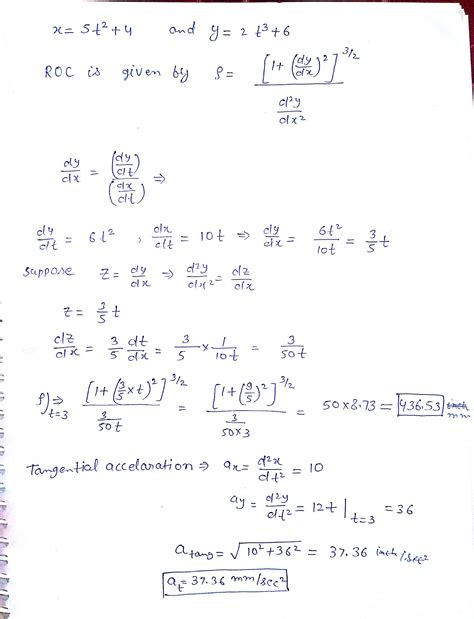 x = 5t² + 4 and y = 2 t³ + 6
ROC is given by ρ = [1 + (dy/dx)²]^3/2 / d²y/dx²
dy/dx = (dy/dt) / (dx/dt) ⇒
dy/dt = 6t² , dx/dt = 10t ⇒ dy/dx = 6t²/10t = 3/5 t
Suppose z = dy/dx ⇒ d²y/dx² = dz/dx
z = 3/5 t
dz/dx = 3/5 dt/dx = 3/5 × 1/10t = 3/50t
ρ)t=3 ⇒ [1 + (3/5 × t)²]^3/2 / 3/50t = [1 + (9/5)²]^3/2 / 3/50×3 = 50 × 8.73 = 436.53 inch mm
Tangential accelaration ⇒ ax = d²x/dt² = 10
ay = d²y/dt² = 12t |t=3 = 36
a tang = √10² + 36² = 37.36 inch/sec²
at = 37.36 mm/sec²